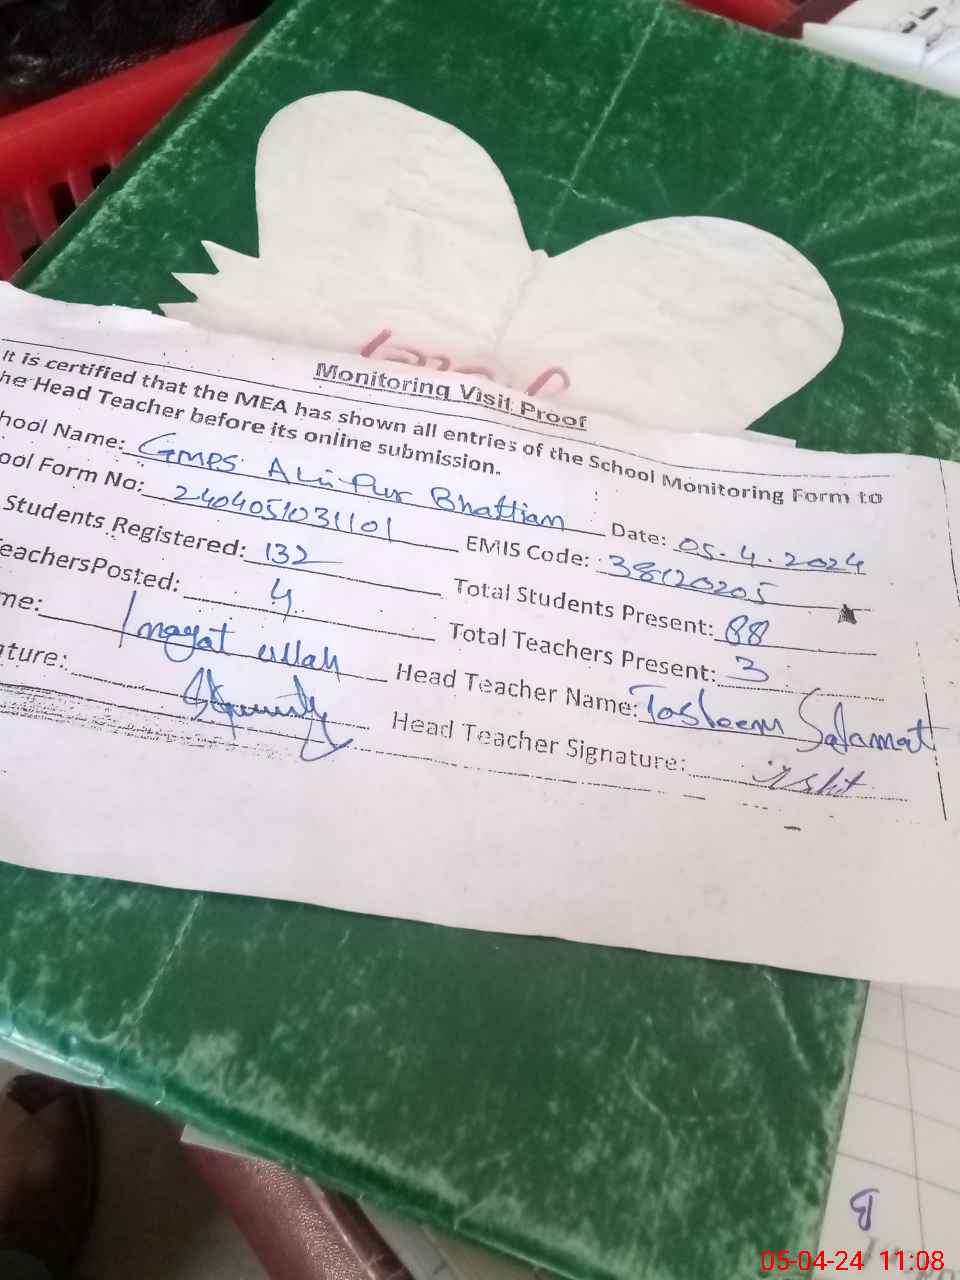 Monitoring Visit Proof
It is certified that the MEA has shown all entries of the School Monitoring Form to
he Head Teacher before its online submission.
hool Name: GMPS Ali Pur Bhattian Date: 05.4.2024
ool Form No: 2404051031101 EMIS Code: 38120205
Students Registered: 132 Total Students Present: 88
eachersPosted: 4 Total Teachers Present: 3
me: Inayat ullah Head Teacher Name: Tasleem Salamat
ature: Head Teacher Signature:
05-04-24 11:08